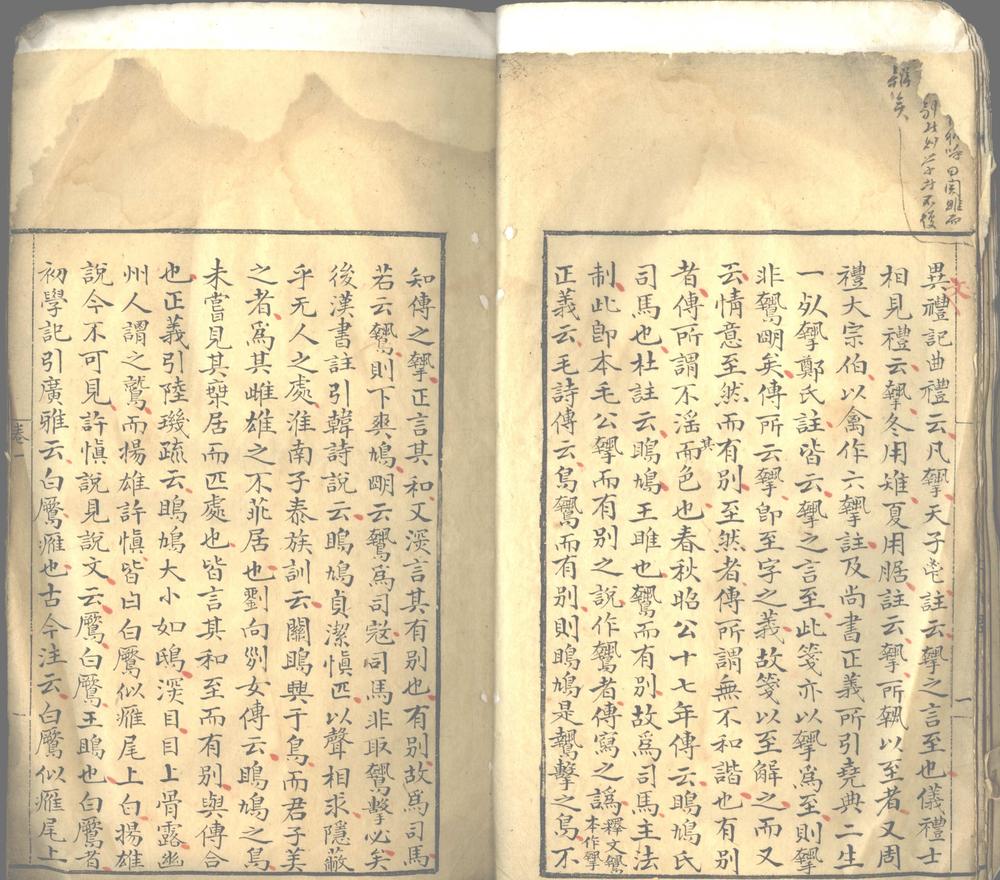 異禮記曲禮云凡鷙天子鬯註云鷙之言至也儀禮士
相見禮云鷙冬用雉夏用腒註云鷙所執以至者又周
禮大宗伯以禽作六鷙註及尚書正義所引堯典二生
一死鷙鄭氏註皆云鷙之言至此箋亦以鷙為至則鷙
非鷙明矣傳所云鷙即至字之義故箋以至解之而又
云情意至然而有別至然者傳所謂無不和諧也有別
者傳所謂不淫其而色也春秋昭公十七年傳云鵙鳩氏
司馬也杜註云鵙鳩王雎也鷙而有別故爲司馬主法
制此卽本毛公鷙而有別之說作鷙者傳寫之譌釋文鷙本作摯
正義云毛詩傳云鳥鷙而有別則鵙鳩是鷙擊之鳥不
知傳之鷙正言其和又深言其有別也有別故爲司馬
若云鷙則下爽鳩明云鷙爲司寇司馬非取鷙擊必矣
後漢書註引韓詩說云鵙鳩貞潔慎匹以聲相求隱蔽
乎无人之處淮南子泰族訓云關鵙興于鳥而君子美
之者爲其雌雄之不乖居也劉向列女傳云鵙鳩之鳥
未嘗見其椉居而匹處也皆言其和至而有別與傳合
也正義引陸璣疏云鵙鳩大小如鴟深目目上骨露幽
州人謂之鷲而揚雄許慎皆曰白鷢似雁尾上白揚雄
說今不可見許慎說見說文云鷢白鷢王鵙也白鷢者
初學記引廣雅云白鷢雁也古今注云白鷢似雁尾上
卷一
一